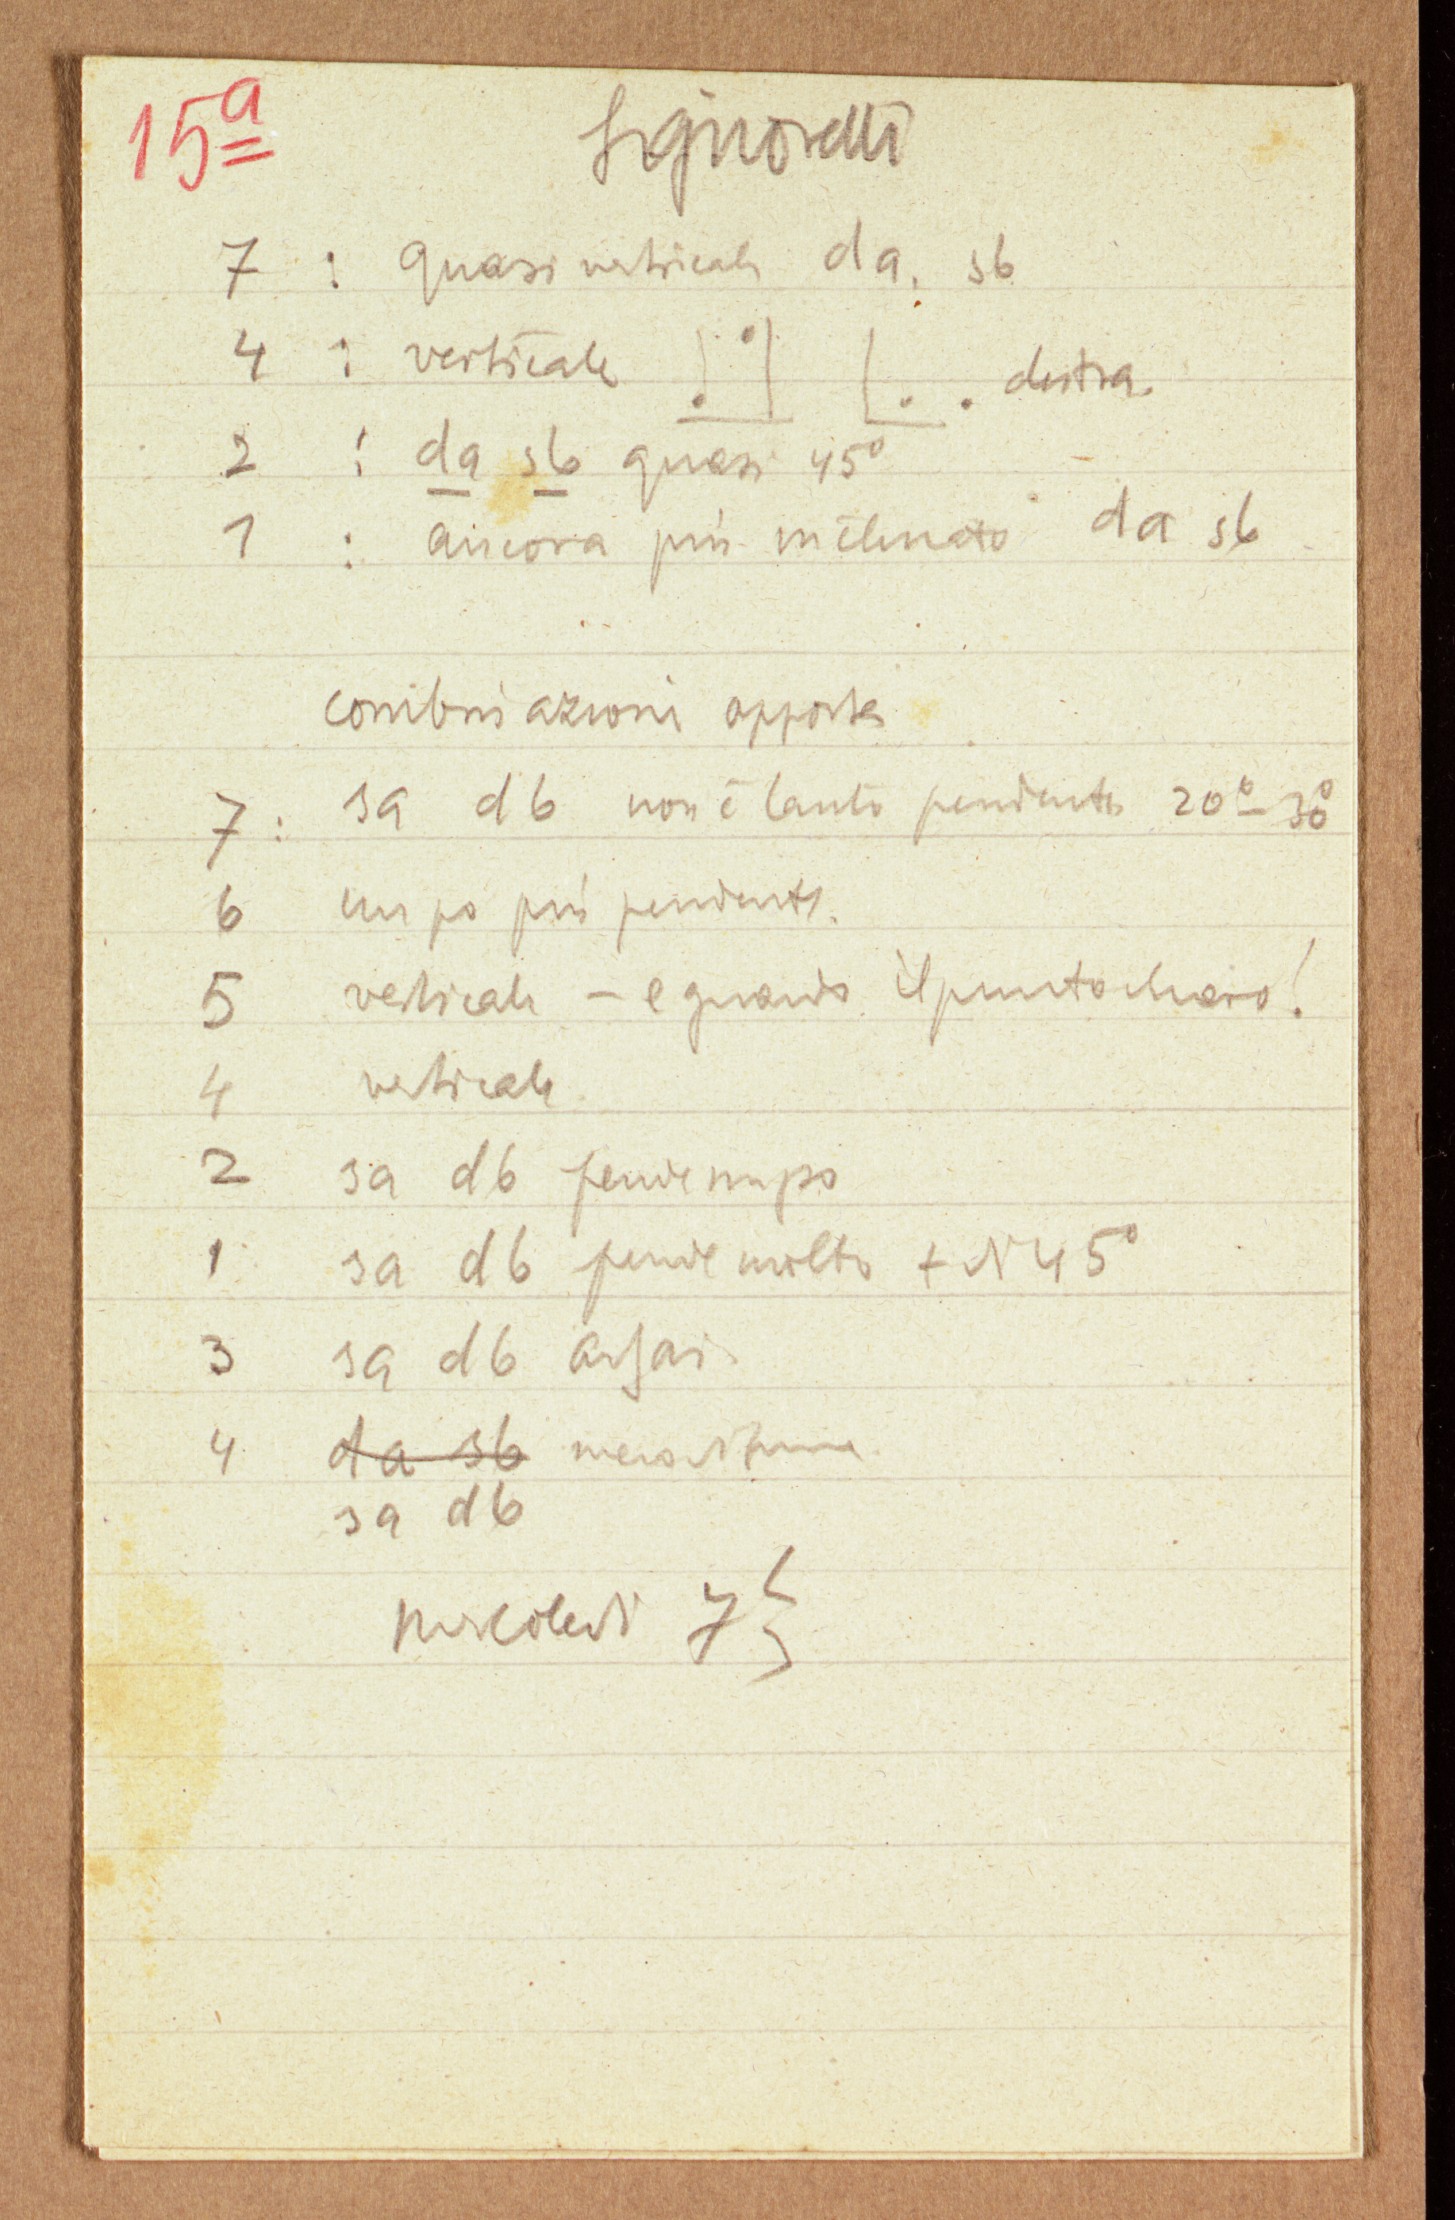 15ª
Signorelli
7 : quasi verticale da. sb
4 : verticale destra.
2 : da sb quasi 45°
1 : ancora più inclinato da sb
combinazioni opposte
7 : sa db non è tanto pendente 20°-30°
6 un po più pendente.
5 verticale - e guardo il punto chiaro!
4 verticale
2 sa db pende un po
1 sa db pende molto + 45°
3 sa db assai
4 da sb
sa db
mercoledì 7